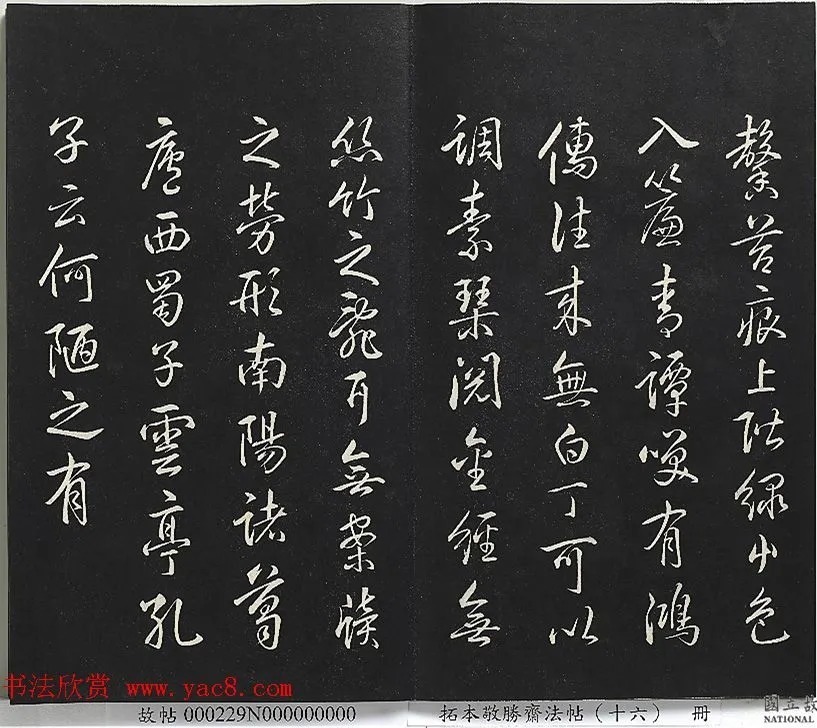 馨苔痕上階綠屮色
入簾青譚咲有鴻
儒往來無白丁可以
調素琴閱金經無
絲竹之亂耳無案牘
之勞形南陽諸葛
廬西蜀子雲亭孔
子云何陋之有
书法欣赏 www.yac8.com
故帖 000229N000000000
拓本敬勝齋法帖（十六） 冊
國立故
NATIONAL